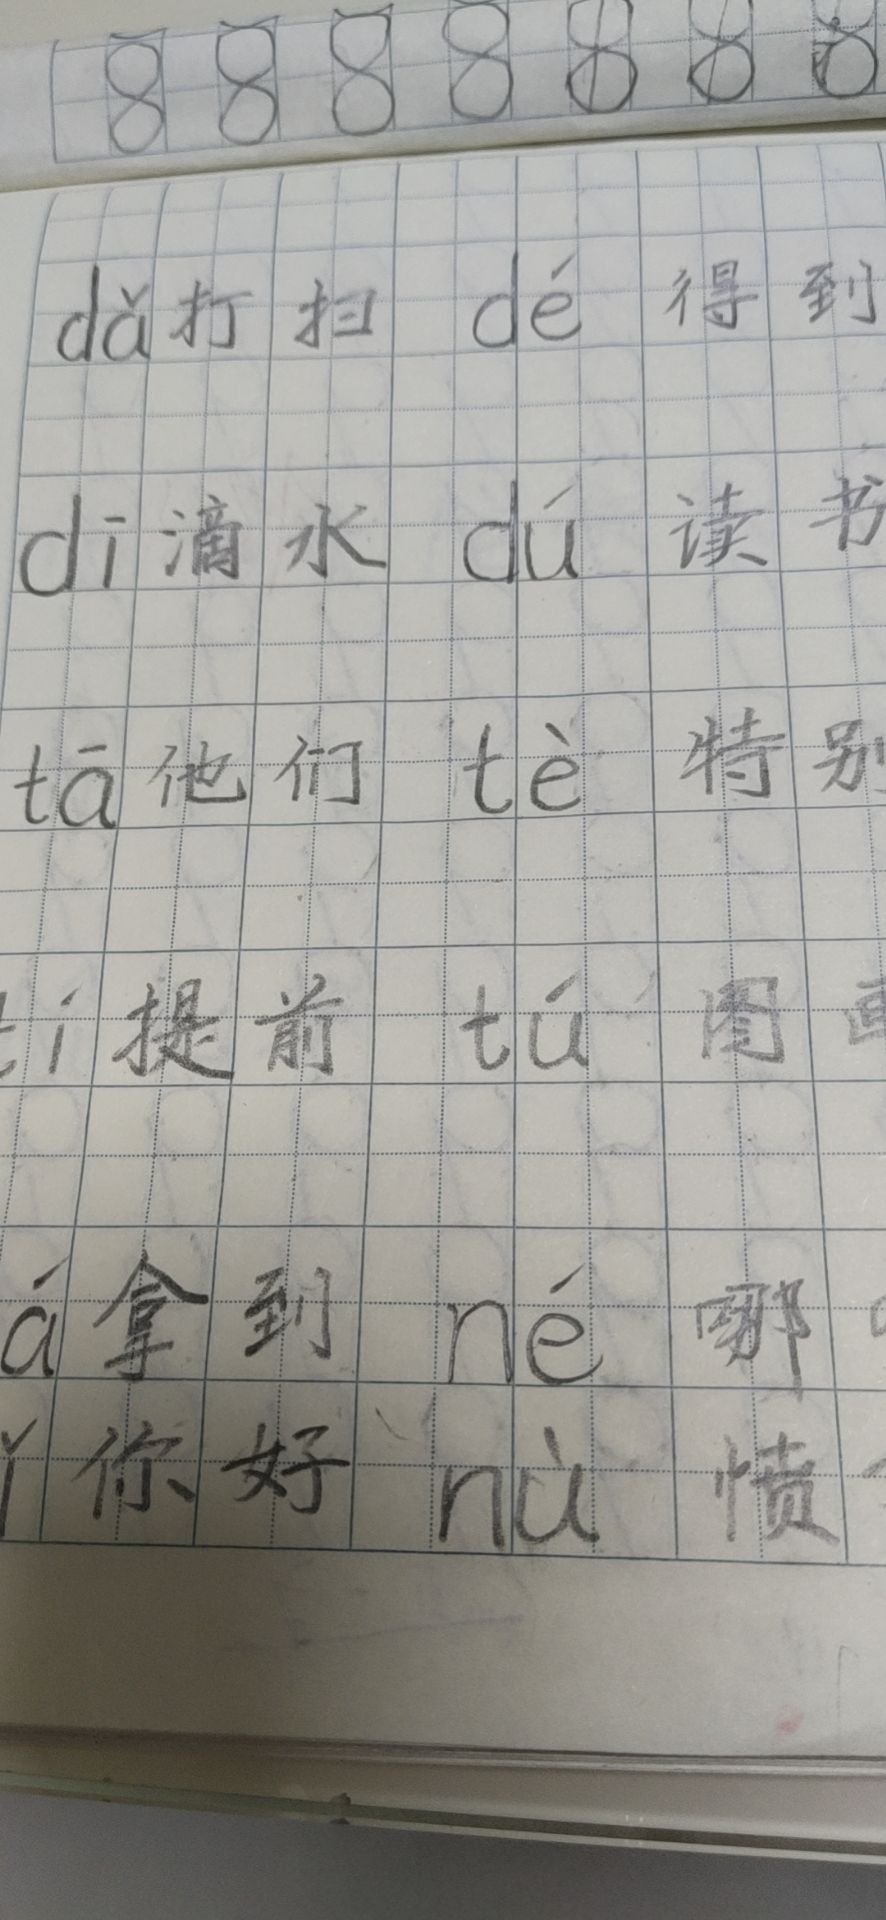 8 8 8 8 8 8 8
dǎ 打扫 dé 得到
dī 滴水 dú 读书
tā 他们 tè 特别
tí 提前 tú 图画
á 拿到 né 哪
ǐ 你好 nù 愤